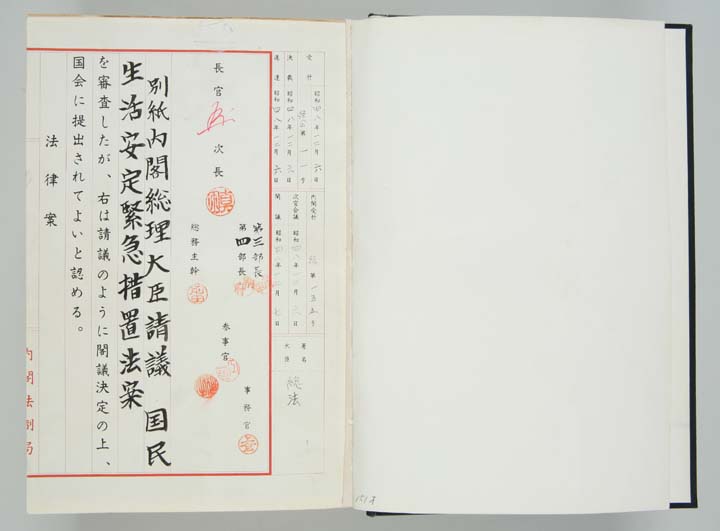 受付 昭和四八年一二月六日
第一一号
決裁 昭和四八年一二月六日
進達 昭和四八年一二月六日
内閣受付 第一五五号
次官会議 昭和四八年一二月六日
閣議 昭和四八年一二月七日
署名
大臣
総
法
長官
次長
第三部長
第四部長
総務主幹
参事官
事務官
別紙内閣総理大臣請議 国民
生活安定緊急措置法案
を審査したが、右は請議のように閣議決定の上、
国会に提出されてよいと認める。
法律案
内閣法制局